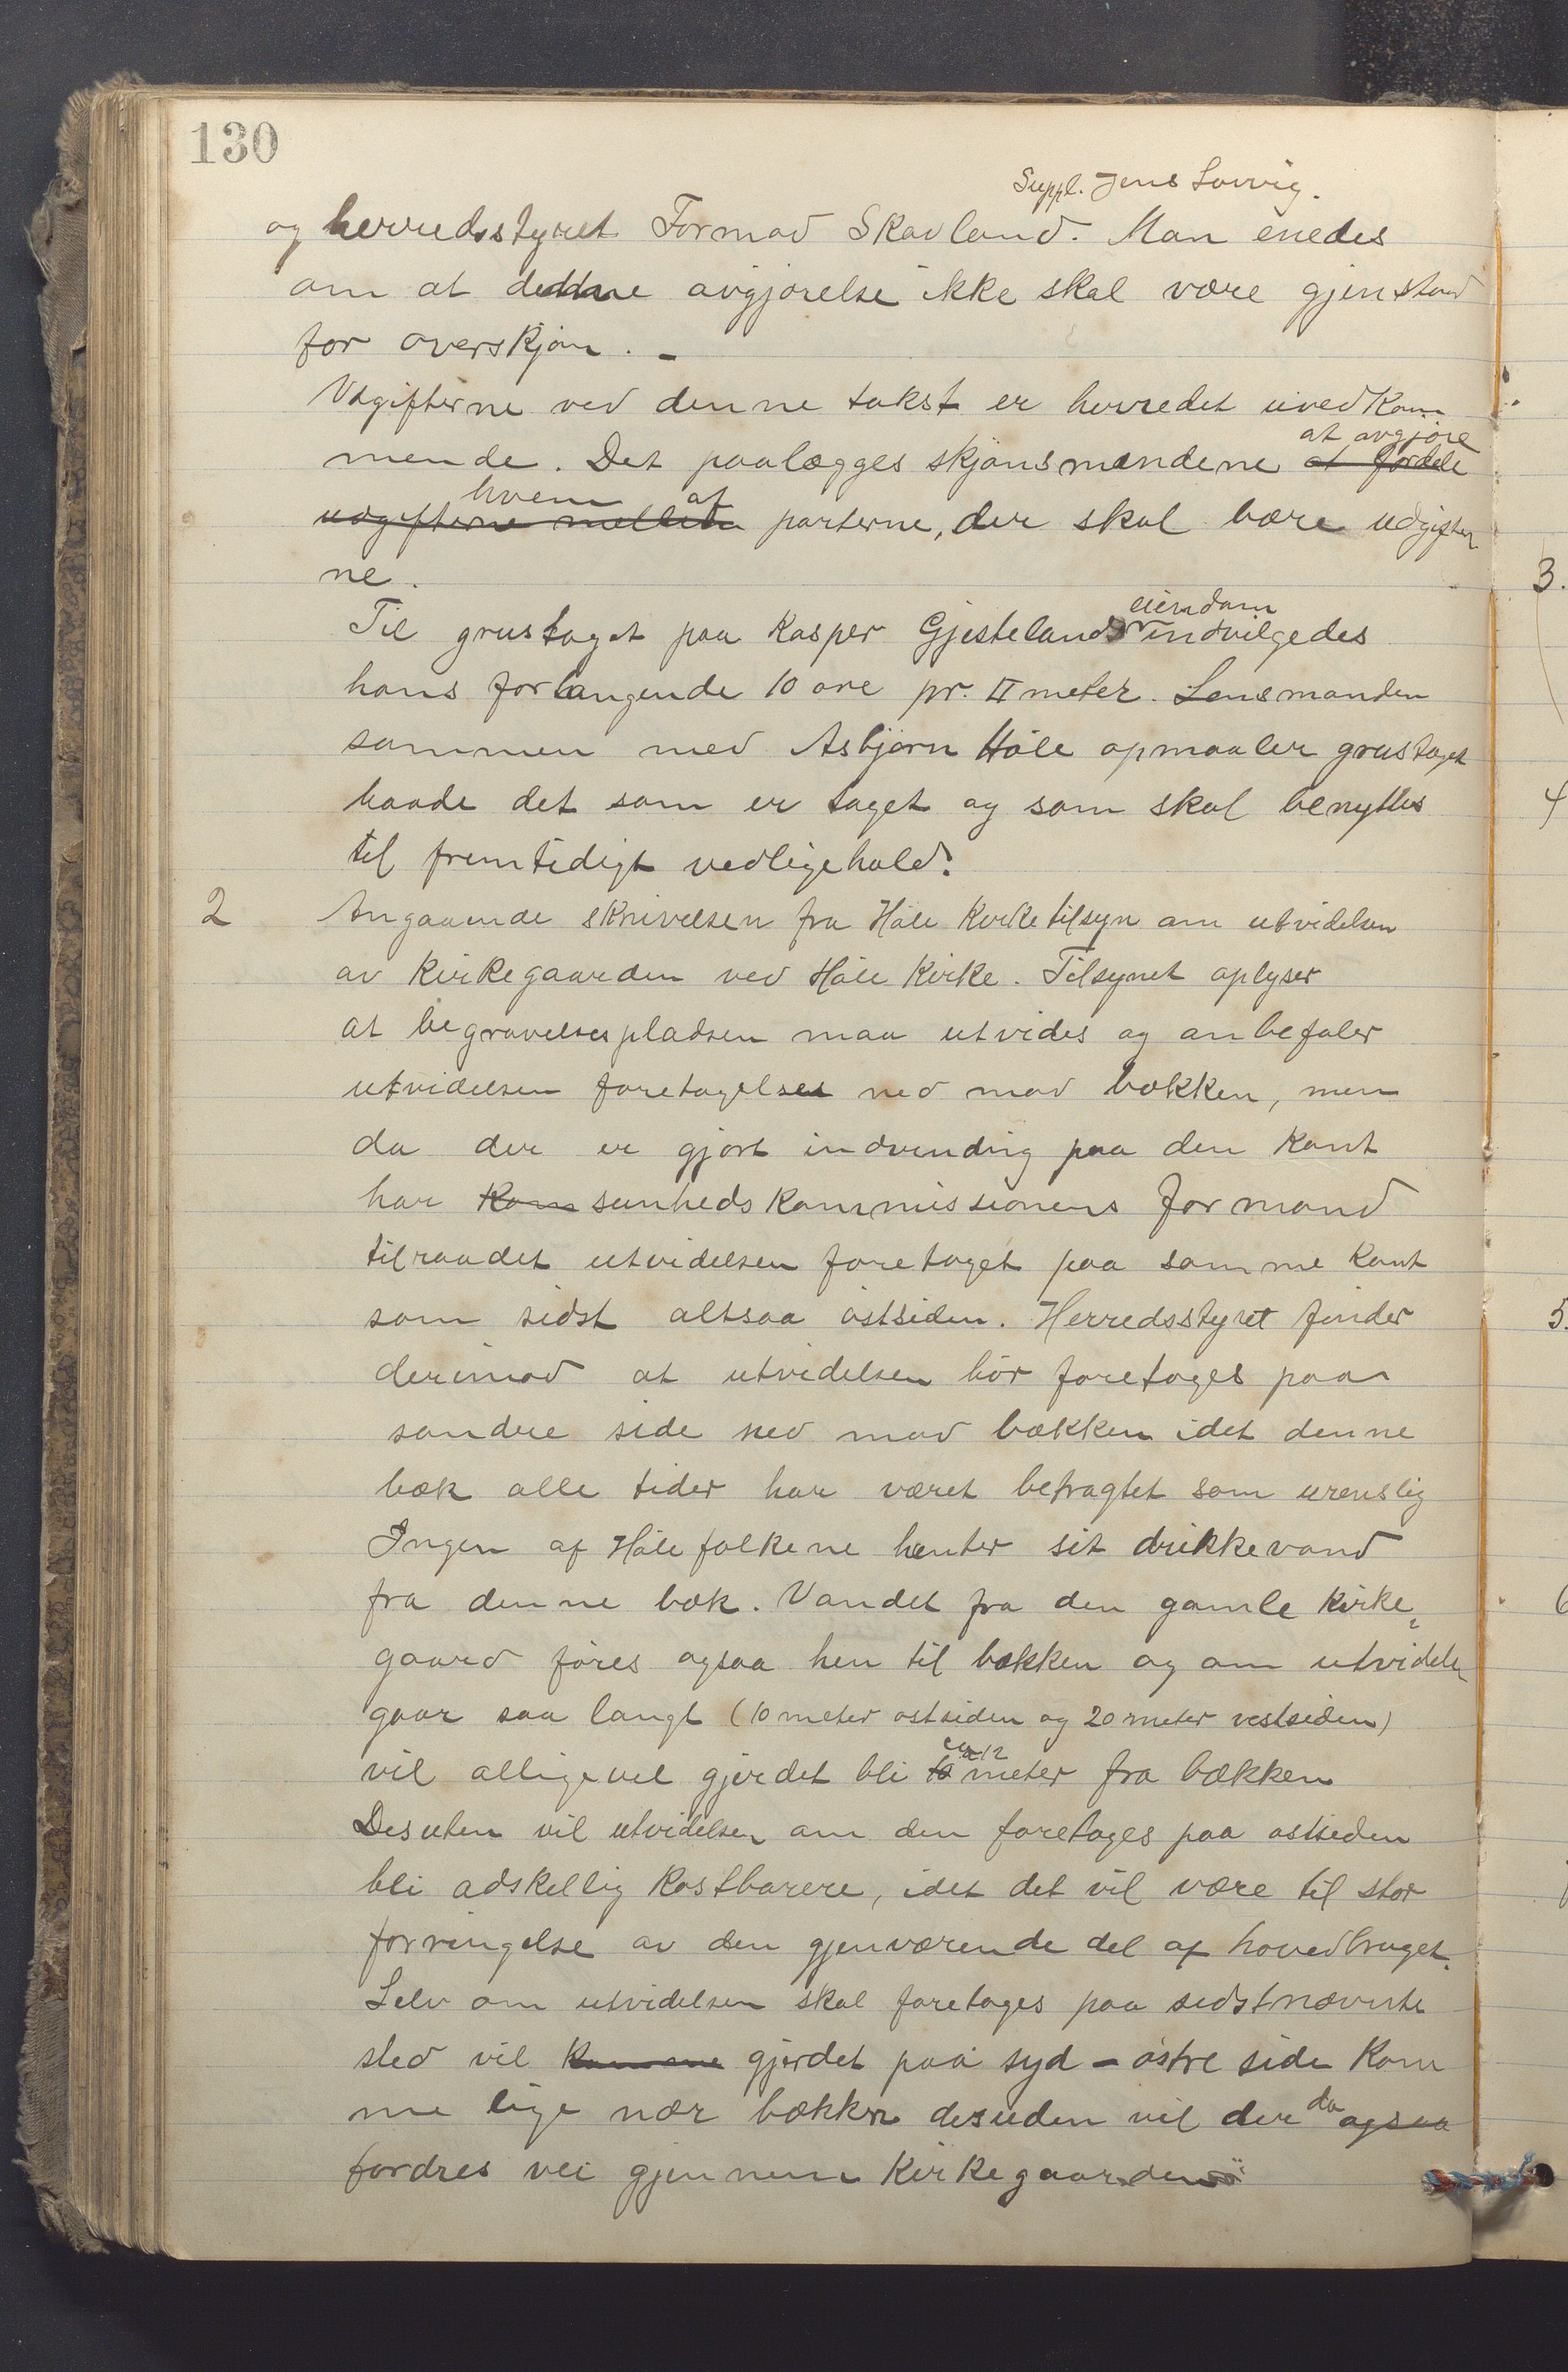 130
Suppl. Jens Lovvig.
og herredsstyret Tormod Skavland. Man enedes
om at denne avgjørelse ikke skal være gjenstand
for overskjøn. -
Utgifterne ved denne takst er herredet uvedkom
at avgjøre
mende. Det paalægges skjønsmændene at fordele
hvem af
udgifterne mellem parterne, der skal bære udgifter
ne.
eiendom
Til grustaget paa Kasper Gjestelands indvilgedes
hans forlangende 10 øre pr. □ meter. Lensmanden
sammen med Asbjørn Høle opmaaler grustaget
baade det som er taget og som skal benyttes
til fremtidigt vedligehold.
2 Angaaende skrivelsen fra Høle Kirketilsyn om utvidelsen
av Kirkegaarden ved Høle Kirke. Tilsynet oplyser
at begravelsespladsen maa utvides og anbefaler
utvidelsen foretagelses ned mod bækken, men
da der er gjort indvending paa den kant
har Kom sunhedskommissionens formand
tilraadet utvidelsen foretaget paa samme kant
som sidst altsaa østsiden. Herredsstyret finder
derimod at utvidelsen bør foretages paa
søndre side ned mod bækken idet denne
bæk alle tider har været betragtet som urenslig
Ingen af Hølefolkene henter sit drikkevand
fra denne bæk. Vandet fra den gamle Kirke-
gaard føres ogsaa hen til bækken og om utvidelsen
gaar saa langt (10 meter østsiden og 20 meter vestsiden)
ca 12
vil alligevel gjerdet bli 10 meter fra bækken
Desuten vil utvidelsen om den foretages paa østsiden
bli adskellig kostbarere, idet det vil være til stor
forringelse av den gjenværende del af hovedbruget.
Selv om utvidelsen skal foretages paa sidstnævnte
sted vil komme gjerdet paa syd - østre side kom
me lige nær bækken desuden vil der da ogsaa
fordres vei gjennem Kirkegaarden
3.
4
5.
6